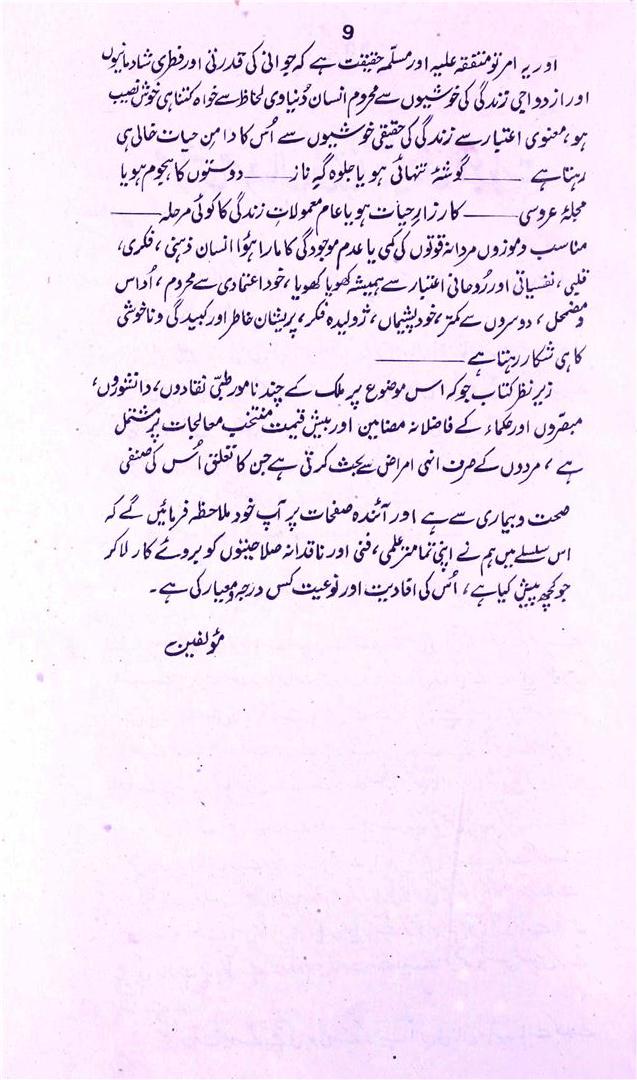 9
اور یہ امر تو متفقہ علیہ اور مسلّمہ حقیقت ہے کہ جوانی کی قدرتی اور فطری شادمانیوں
اور ازدواجی زندگی کی خوشیوں سے محروم انسان دُنیاوی لحاظ سے خواہ کتنا ہی خوش نصیب
ہو، معنوی اعتبار سے زندگی کی حقیقی خوشیوں سے اُس کا دامنِ حیات خالی ہی
رہتا ہے ــــــ گوشۂ تنہائی ہو یا جلوہ گہِ ناز ــــــ دوستوں کا ہجوم ہو یا
حجلۂ عروسی ــــــ کارزارِ حیات ہو یا عام معمولاتِ زندگی کا کوئی مرحلہ ــــــ
مناسب و موزوں مردانہ قوتوں کی کمی یا عدم موجودگی کا مارا ہؤا انسان ذہنی، فکری،
قلبی، نفسیاتی اور رُوحانی اعتبار سے ہمیشہ کھویا کھویا، خود اعتمادی سے محروم، اُداس
و مضمحل، دوسروں سے کمتر، خود پشیماں، ژولیدہ فکر، پریشان خاطر اور کبیدگی و ناخوشی
کا ہی شکار رہتا ہے ــــــ
زیرِ نظر کتاب جو کہ اس موضوع پر ملک کے چند نامور طبّی نقادوں، دانشوروں،
مبصروں اور علماء کے فاضلانہ مضامین اور بیش قیمت منتخب معالجات پر مشتمل
ہے، مردوں کے صرف انہی امراض سے بحث کرتی ہے جن کا تعلق اُس کی صنفی
صحت و بیماری سے ہے اور آئندہ صفحات پر آپ خود ملاحظہ فرمائیں گے کہ
اس سلسلے میں ہم نے اپنی تمامتر علمی، فنی اور ناقدانہ صلاحیتوں کو بروئے کار لا کر
جو کچھ پیش کیا ہے، اُس کی افادیت اور نوعیت کس درجہ و معیار کی ہے۔
مؤلفین